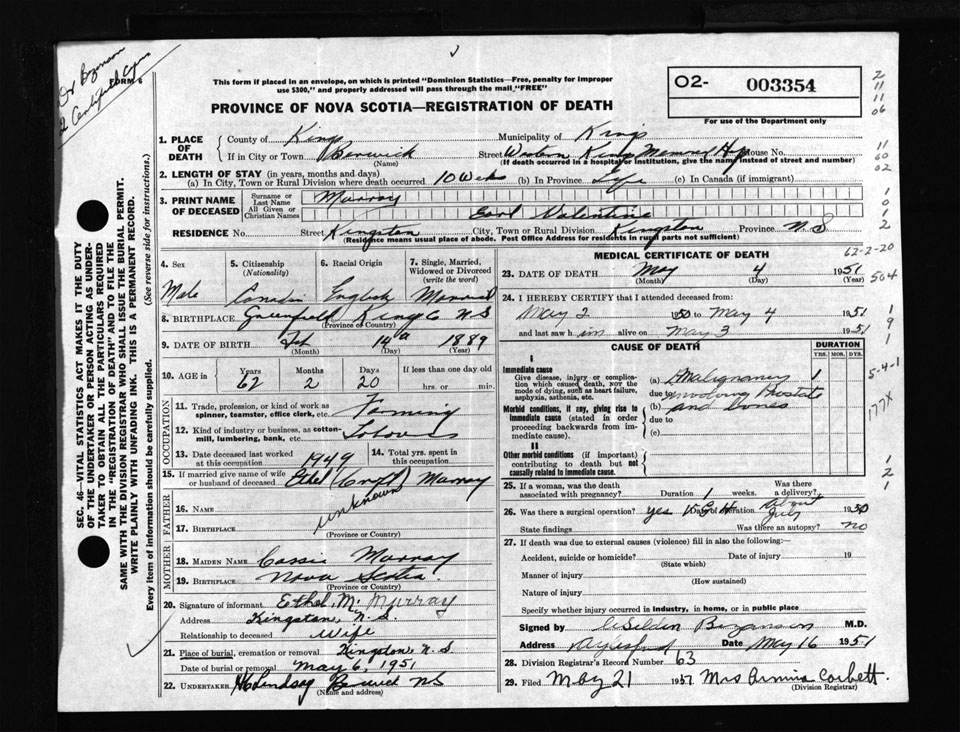 Dr Bezanson
2 Certified Copies
FORM 6
This form if placed in an envelope, on which is printed "Dominion Statistics—Free, penalty for improper
use $300," and properly addressed will pass through the mail "FREE"
PROVINCE OF NOVA SCOTIA—REGISTRATION OF DEATH
O2- 003354
For use of the Department only
2
11
11
06
11
60
02
1
0
1
2
62-2-20
504
1
9
1
5-4-1
177X
1
2
1
SEC. 46—VITAL STATISTICS ACT MAKES IT THE DUTY
OF THE UNDERTAKER OR PERSON ACTING AS UNDER-
TAKER TO OBTAIN ALL THE PARTICULARS REQUIRED
IN THE "REGISTRATION OF DEATH" AND TO FILE THE
SAME WITH THE DIVISION REGISTRAR WHO SHALL ISSUE THE BURIAL PERMIT.
WRITE PLAINLY WITH UNFADING INK. THIS IS A PERMANENT RECORD.
Every item of information should be carefully supplied. (See reverse side for instructions.)
1. PLACE OF DEATH County of Kings Municipality of Kings
If in City or Town Berwick (Name) Street Western Kings Memory Hosp House No.
(If death occurred in a hospital or institution, give the name instead of street and number)
2. LENGTH OF STAY (in years, months and days)
(a) In City, Town or Rural Division where death occurred 10 Weeks (b) In Province Life (c) In Canada (if immigrant)
3. PRINT NAME OF DECEASED Surname or Last Name Murray
All Given or Christian Names Earl Valentine
RESIDENCE No. Street Kingston City, Town or Rural Division Kingston Province N.S
(Residence means usual place of abode. Post Office Address for residents in rural parts not sufficient)
4. Sex Male
5. Citizenship (Nationality) Canadian
6. Racial Origin English
7. Single, Married, Widowed or Divorced (write the word) Married
8. BIRTHPLACE Greenfield Kings Co NS
(Province or Country)
9. DATE OF BIRTH Feb 14th 1889
(Month) (Day) (Year)
10. AGE in Years 62 Months 2 Days 20 If less than one day old
hrs. or min.
OCCUPATION
11. Trade, profession, or kind of work as spinner, teamster, office clerk, etc. Farming
12. Kind of industry or business, as cotton-mill, lumbering, bank, etc.
13. Date deceased last worked at this occupation 1949
14. Total yrs. spent in this occupation
15. If married give name of wife or husband of deceased Ethel Murray
FATHER
16. NAME unknown
17. BIRTHPLACE
(Province or Country)
MOTHER
18. MAIDEN NAME Cassie Murray
19. BIRTHPLACE Nova Scotia.
(Province or Country)
20. Signature of informant Ethel. M. Murray
Address Kingston, N.S.
Relationship to deceased Wife
21. Place of burial, cremation or removal Kingston, N.S.
Date of burial or removal May 6, 1951
22. UNDERTAKER Lindsay Berwick NS
(Name and address)
MEDICAL CERTIFICATE OF DEATH
23. DATE OF DEATH May 4 1951
(Month) (Day) (Year)
24. I HEREBY CERTIFY that I attended deceased from:
May 2 1950 to May 4 1951
and last saw him alive on May 3 1951
CAUSE OF DEATH
DURATION
YRS. MOS. DYS.
I
Immediate cause
Give disease, injury or complication which caused death, not the mode of dying, such as heart failure, asphyxia, asthenia, etc.
(a) Malignancy 1
due to involving Prostate
Morbid conditions, if any, giving rise to immediate cause (stated in order proceeding backwards from immediate cause).
(b) and bones
due to
(c)
II
Other morbid conditions (if important) contributing to death but not causally related to immediate cause.
25. If a woman, was the death associated with pregnancy? Duration weeks. Was there a delivery?
26. Was there a surgical operation? yes V.G.H. Date of operation about July 1950
State findings Was there an autopsy? no
27. If death was due to external causes (violence) fill in also the following:—
Accident, suicide or homicide? Date of injury 19
(State which)
Manner of injury
(How sustained)
Nature of injury
Specify whether injury occurred in industry, in home, or in public place
Signed by Selden Bezanson M.D.
Address Aylesford Date May 16 1951
28. Division Registrar's Record Number 63
29. Filed May 21 1951 Mrs Armina Corbett.
(Division Registrar)